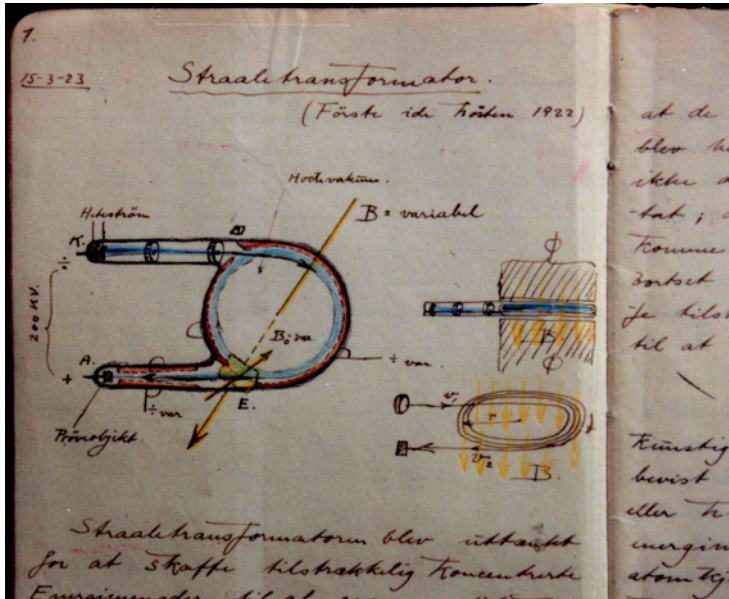 1.
15-3-23
Straaletransformator.
(Förste ide hösten 1922)
Hochvakuum.
B = variabel
K.
÷
200 KV.
+
A.
B₀ = var.
÷ var.
÷ var
E.
Pröveobjekt
φ
B
φ
v₁
r
v₂
B
Straaletransformatoren blev uttænkt
for at skaffe tilstrækkelig koncentrerte
Energimengder til at
at de
blev
ikke
tat ;
komme
bortset
til at
Kunstig
bevist
eller